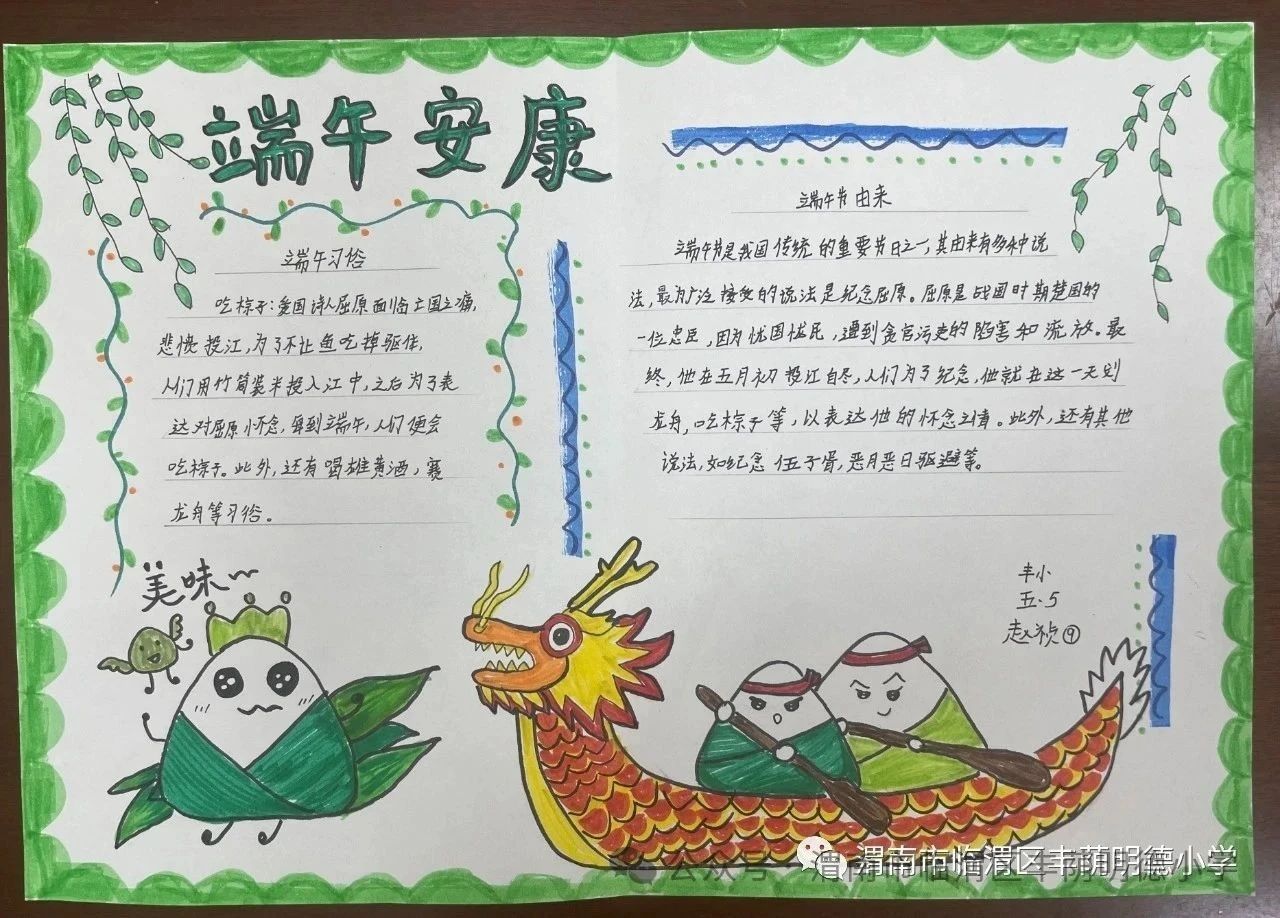 端午安康
端午习俗
吃棕子：爱国诗人屈原面临亡国之痛，
悲愤投江，为了不让鱼吃掉躯体，
人们用竹筒装米投入江中，之后为了表
达对屈原怀念，每到端午，人们便会
吃棕子。此外，还有喝雄黄酒，赛
龙舟等习俗。
美味~
端午节由来
端午节是我国传统的重要节日之一，其由来有多种说
法，最为广泛接受的说法是纪念屈原。屈原是战国时期楚国的
一位忠臣，因为忧国忧民，遭到贪官污吏的陷害和流放。最
终，他在五月初投江自尽，人们为了纪念，他就在这一天划
龙舟，吃棕子等，以表达他的怀念之情。此外，还有其他
说法，如纪念伍子胥，恶月恶日驱避等。
丰小
五·5
赵祯⑨
渭南市临渭区丰荫明德小学
公众号·渭南市临渭区丰荫明德小学